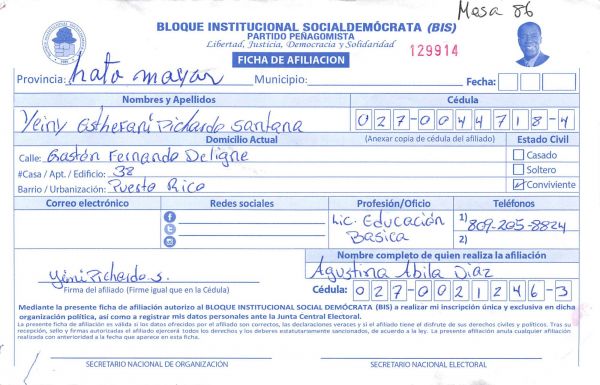 Mesa 86
BLOQUE INSTITUCIONAL SOCIALDEMÓCRATA (BIS)
PARTIDO PEÑAGOMISTA
Libertad, Justicia, Democracia y Solidaridad
129914
FICHA DE AFILIACION
Provincia: hato mayor Municipio: Fecha:
Nombres y Apellidos Cédula
Yeiny Estherani Pichardo Santana 027-0044718-4
Domicilio Actual (Anexar copia de cédula del afiliado) Estado Civil
Calle: Gastón Fernando Deligne Casado
#Casa / Apt. / Edificio: 38 Soltero
Barrio / Urbanización: Puerto Rico Conviviente
Correo electrónico Redes sociales Profesión/Oficio Teléfonos
Lic. Educación Basica 1) 809-205-8824
2)
Nombre completo de quien realiza la afiliación
Agustina Abila Diaz
Yeini Pichardo S.
Firma del afiliado (Firme igual que en la Cédula) Cédula: 027-0021246-3
Mediante la presente ficha de afiliación autorizo al BLOQUE INSTITUCIONAL SOCIAL DEMÓCRATA (BIS) a realizar mi inscripción única y exclusiva en dicha
organización política, así como a registrar mis datos personales ante la Junta Central Electoral.
La presente ficha de afiliación es valida si los datos ofrecidos por el afiliado son correctos, las declaraciones veraces y si el afiliado tiene el disfrute de sus derechos civiles y políticos. Tras su
recepción, sello y firmas autorizadas el afiliado ejercerá todos los derechos y los deberes estatutariamente sancionados, de acuerdo a la ley. La presente afiliación anula cualquier afiliación
realizada con anterioridad a la fecha que aparece en esta ficha.
SECRETARIO NACIONAL DE ORGANIZACIÓN SECRETARIO NACIONAL ELECTORAL